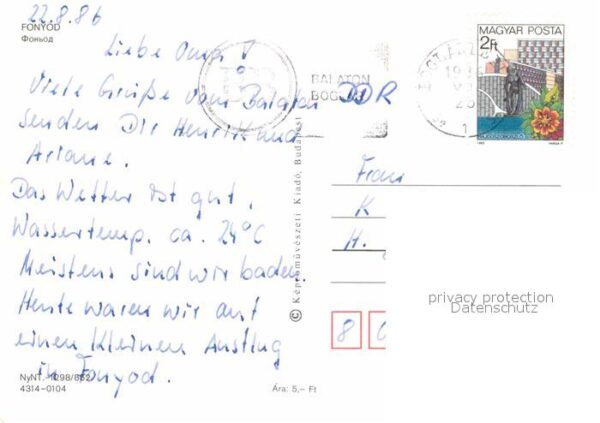 22.8.86
FONYÓD
Фоньод
Liebe Omi!
Viele Grüße vom Balaton
senden Dir Henrik und
Ariane.
Das Wetter ist gut,
Wassertemp. ca. 24°C
Meistens sind wir baden.
Heute waren wir auf
einen kleinen Ausflug
in Fonyod.
NyNT.-1298/862
4314-0104
Ára: 5,- Ft
© Képzőművészeti Kiadó, Budapest
BALATON
BOG
MAGYAR POSTA
2Ft
DDR
Frau
K
H.
8
privacy protection
Datenschutz